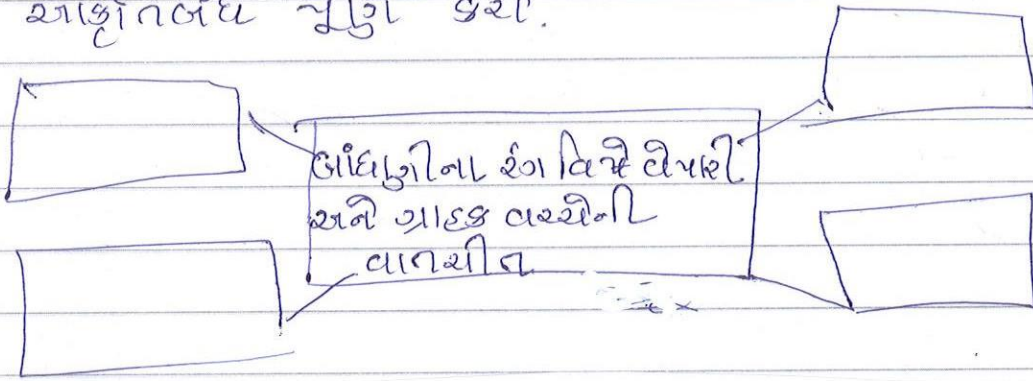 આકૃતિબંધ પૂર્ણ કરો.
બાંધણીના રંગ વિષે વેપારી
અને ગ્રાહક વચ્ચેની
વાતચીત